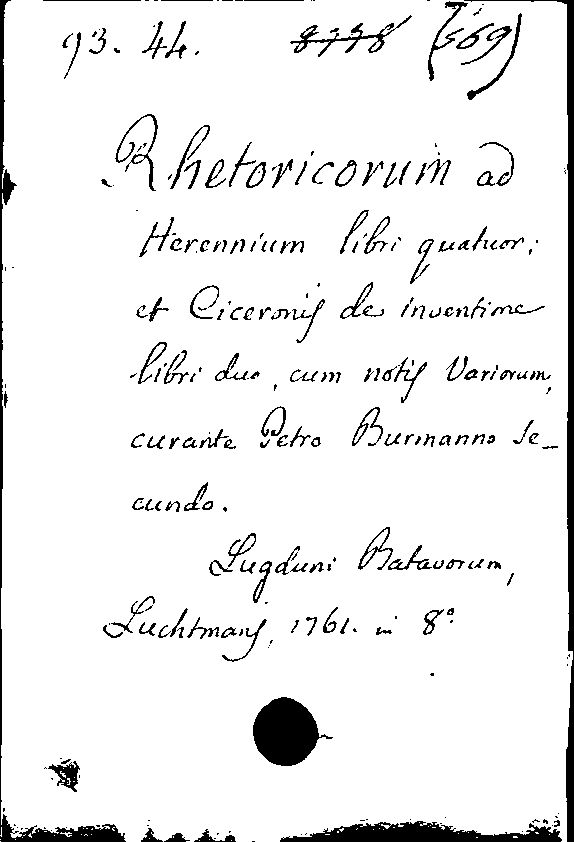 93. 44. 8738 (569)
Rhetoricorum ad
Herennium libri quatuor;
et Ciceronis de inventione
libri duo, cum notis Variorum,
curante Petro Burmanno Se-
cundo.
Lugduni Batavorum,
Luchtmans, 1761. in 8°